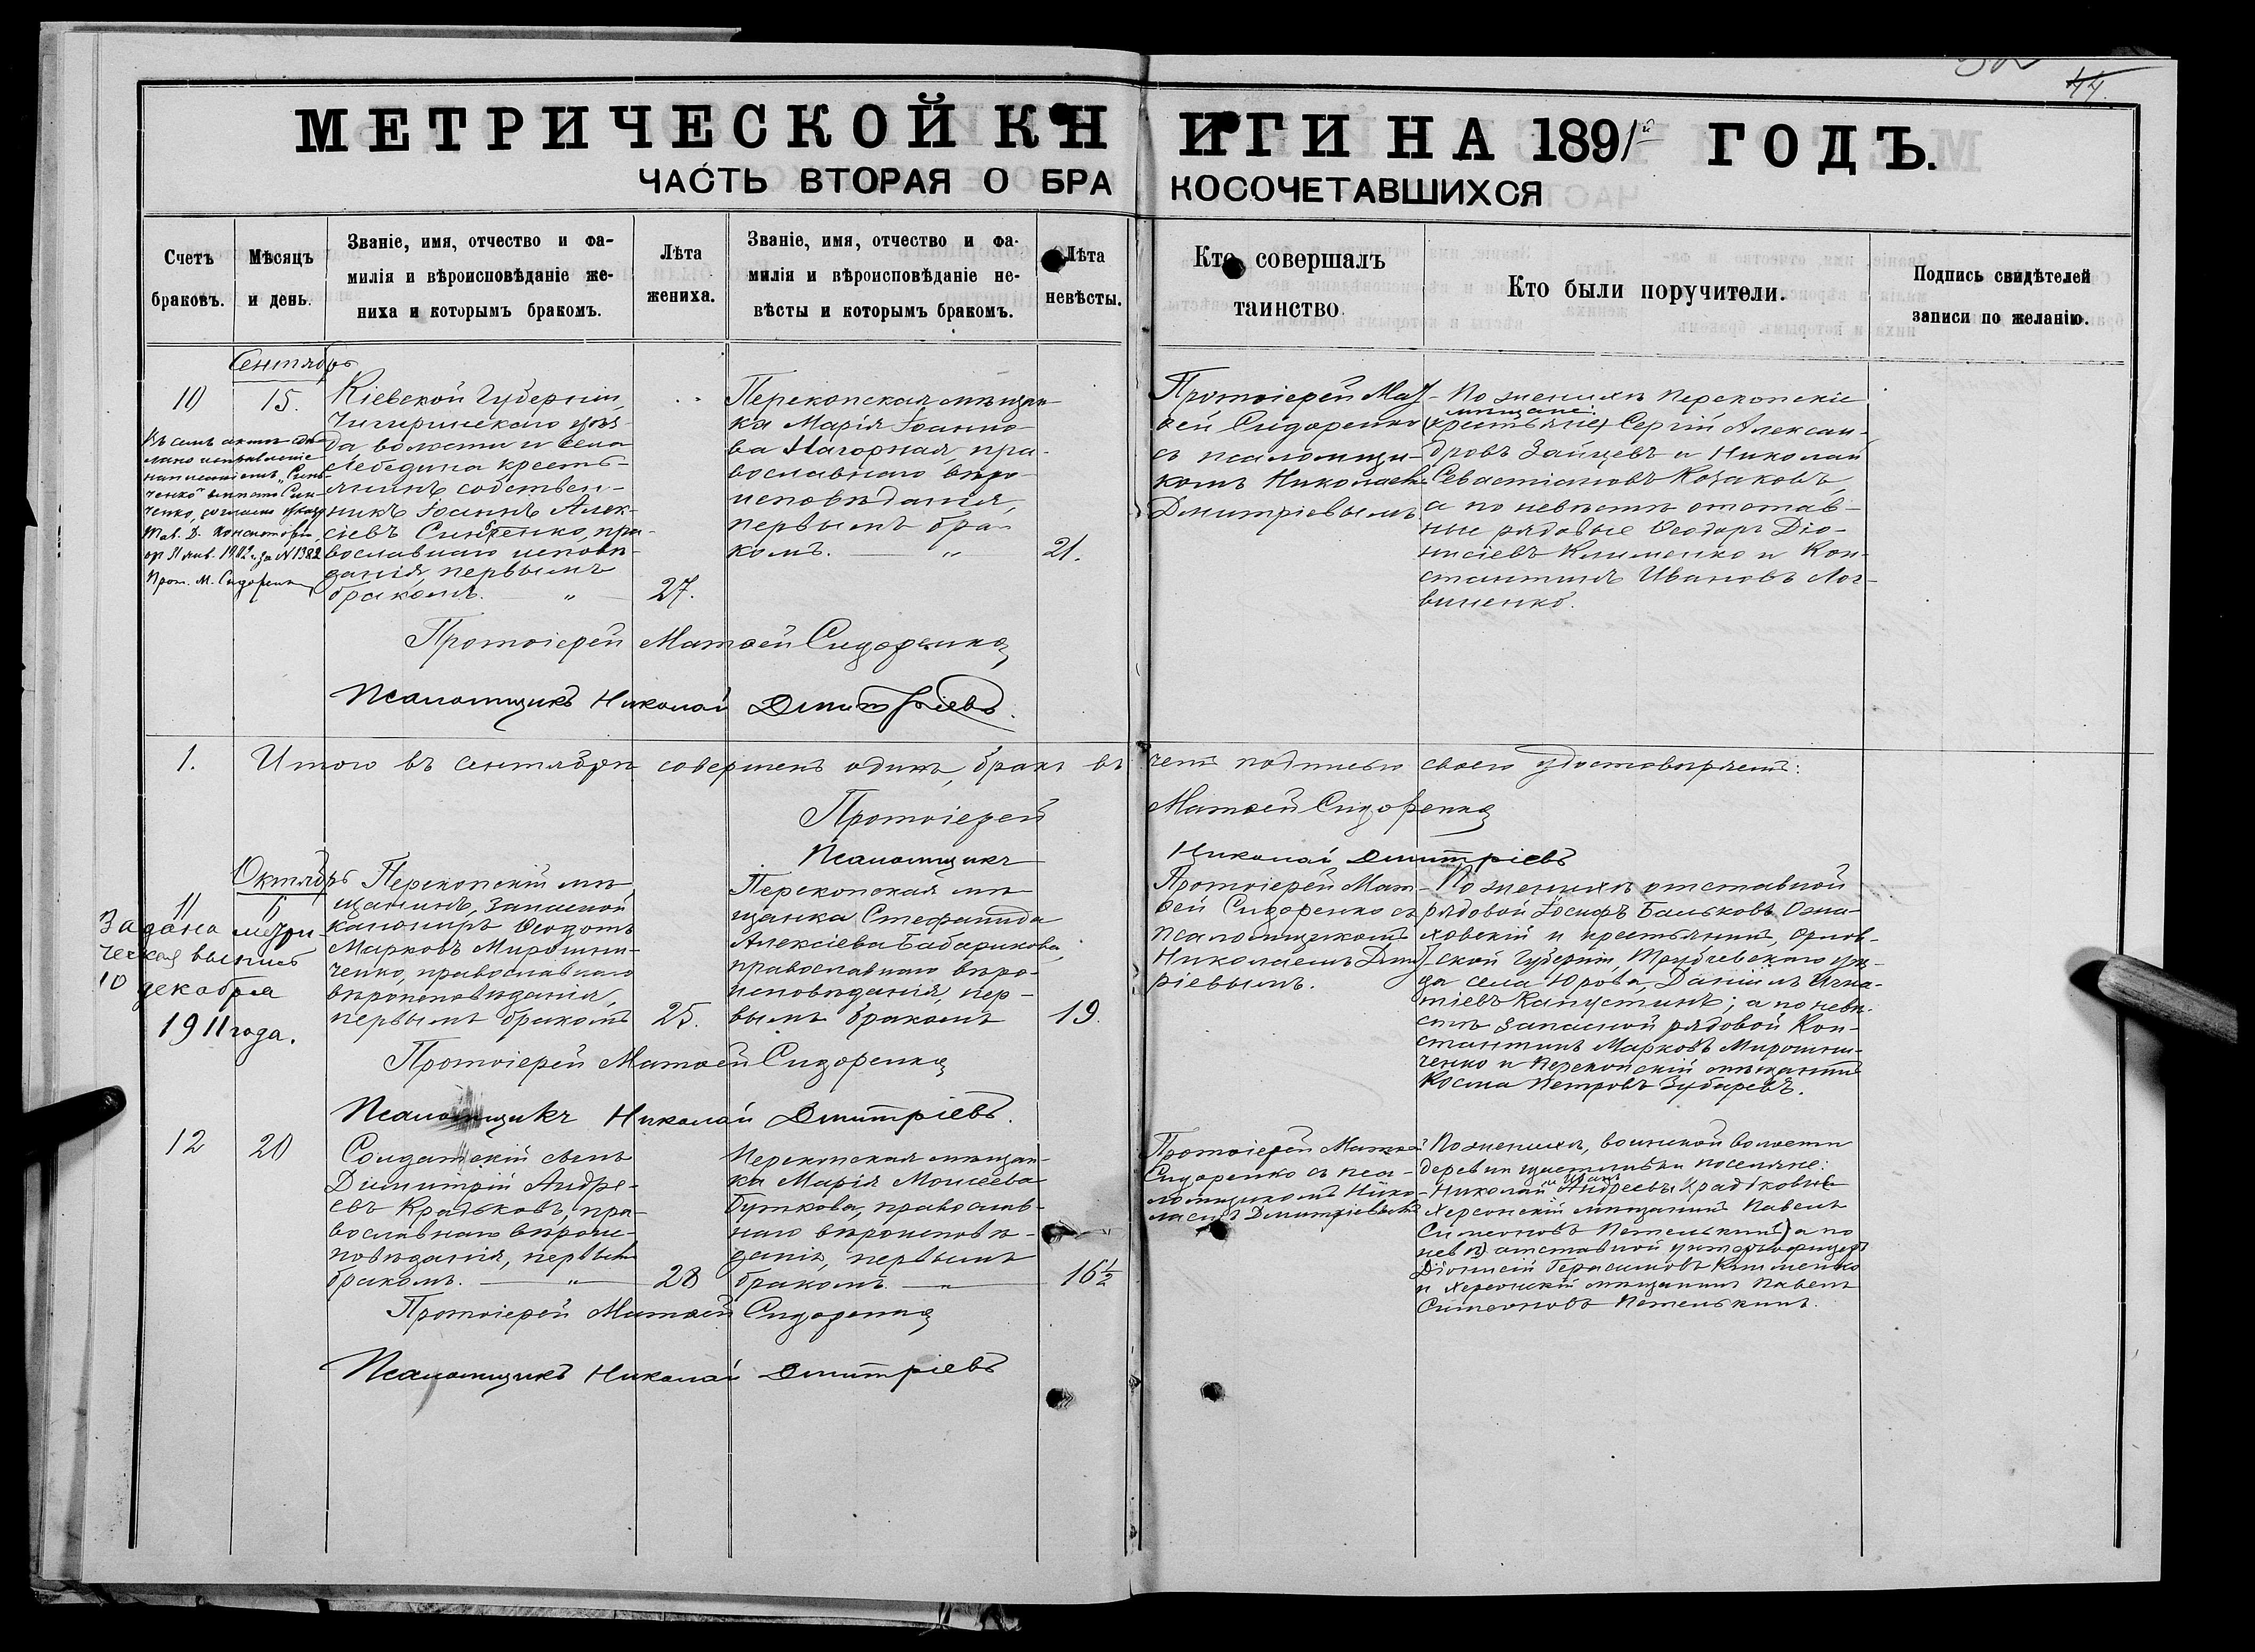 44.
МЕТРИЧЕСКОЙ КНИГИ НА 1891й ГОДЪ.
ЧАСТЬ ВТОРАЯ О БРАКОСОЧЕТАВШИХСЯ
Счетъ
браковъ.
Мѣсяцъ
и день.
Званіе, имя, отчество и фа-
милія и вѣроисповѣданіе же-
ниха и которымъ бракомъ.
Лѣта
жениха.
Званіе, имя, отчество и фа-
милія и вѣроисповѣданіе не-
вѣсты и которымъ бракомъ.
Лѣта
невѣсты.
Кто совершалъ
таинство
Кто были поручители.
Подпись свидѣтелей
записи по желанію.
Сентябрь
10
15.
Въ семъ актѣ сдѣ-
лано исправленіе
написаніемъ „
ченко" вмѣсто Син-
ченко, согласно указу
Тав. Д. Консисторіи,
от 11 янв. 1902 г. за № 1382
Прот. М. Сидоренко
Кіевской Губерніи,
Чигиринскаго уѣз-
да, волости и села
Лебедина кресть-
янинъ собствен-
никъ Іоаннъ Алек-
сіевъ пра-
вославнаго исповѣ-
данія, первымъ
бракомъ. — „ —
27.
Перекопская мѣщан-
ка Марія Іоанно-
ва Нагорная, пра-
вославнаго вѣро-
исповѣданія,
первымъ бра-
комъ. „
21.
Протоіерей Мат-
ѳей Сидоренко
съ псаломщи-
комъ Николаемъ
Дмитріевымъ
По женихѣ Перекопскіе
мѣщане:
(крестьяне) Сергій Алексан-
дровъ Зайцевъ и Николай
Севастіановъ Козаковъ,
а по невѣстѣ отстав-
ные рядовые Ѳеодоръ Діо-
нисіевъ Клименко и Кон-
стантинъ Ивановъ Лог-
виненко.
Протоіерей Матѳей Сидоренко
Псаломщикъ Николай Дмитріевъ.
1. Итого въ сентябрѣ совершенъ одинъ бракъ въ чемъ подписью своею удостовѣряемъ:
Протоіерей Матѳей Сидоренко
Псаломщикъ Николай Дмитріевъ
Октябрь
11
6
метри-
ческая выпись
10 декабря
1911 года.
Перекопскій мѣ-
щанинъ, запасной
канониръ Ѳеодотъ
Марковъ Мирошни-
ченко, православнаго
вѣроисповѣданія,
первымъ бракомъ
25.
Перекопская мѣ-
щанка Стефанида
Алексіева Бабарикова,
православнаго вѣро-
исповѣданія, пер-
вымъ бракомъ
19.
Протоіерей Мат-
ѳей Сидоренко съ
псаломщикомъ
Николаемъ Дмит-
ріевымъ.
По женихѣ отставной
рядовой Іосифъ
и крестьянинъ, Орлов-
ской Губерніи, Трубчевскаго уѣз-
да села Юрова, Даніилъ Игна-
тіевъ Капустинъ; а по невѣ-
стѣ запасной рядовой Кон-
стантинъ Марковъ Мирошни-
ченко и Перекопскій мѣщанинъ
Косма Петровъ Зубаревъ.
Протоіерей Матѳей Сидоренко
Псаломщикъ Николай Дмитріевъ.
12
20
Солдатскій сынъ
Димитрій Андре-
евъ Крадьковъ, пра-
вославнаго вѣроис-
повѣданія, первымъ
бракомъ. — „ —
28
Перекопская мѣщан-
ка Марія Моисеева
Буткова, православ-
наго вѣроисповѣ-
данія, первымъ
бракомъ. — „ —
16 1/2
Протоіерей Матѳей
Сидоренко съ пса-
ломщикомъ Нико-
лаемъ Дмитріевымъ
По женихѣ, волости
деревни поселяне:
Николай и Иванъ Андреевы Крадьковы
Херсонскій мѣщанинъ Павелъ
Симеоновъ Петенькинъ) а по
нев.) отставной унтеръ-офицеръ
Діонисій Герасимовъ Клименко
и Херсонскій мѣщанинъ Павелъ
Симеоновъ Петенькинъ.
Протоіерей Матѳей Сидоренко
Псаломщикъ Николай Дмитріевъ